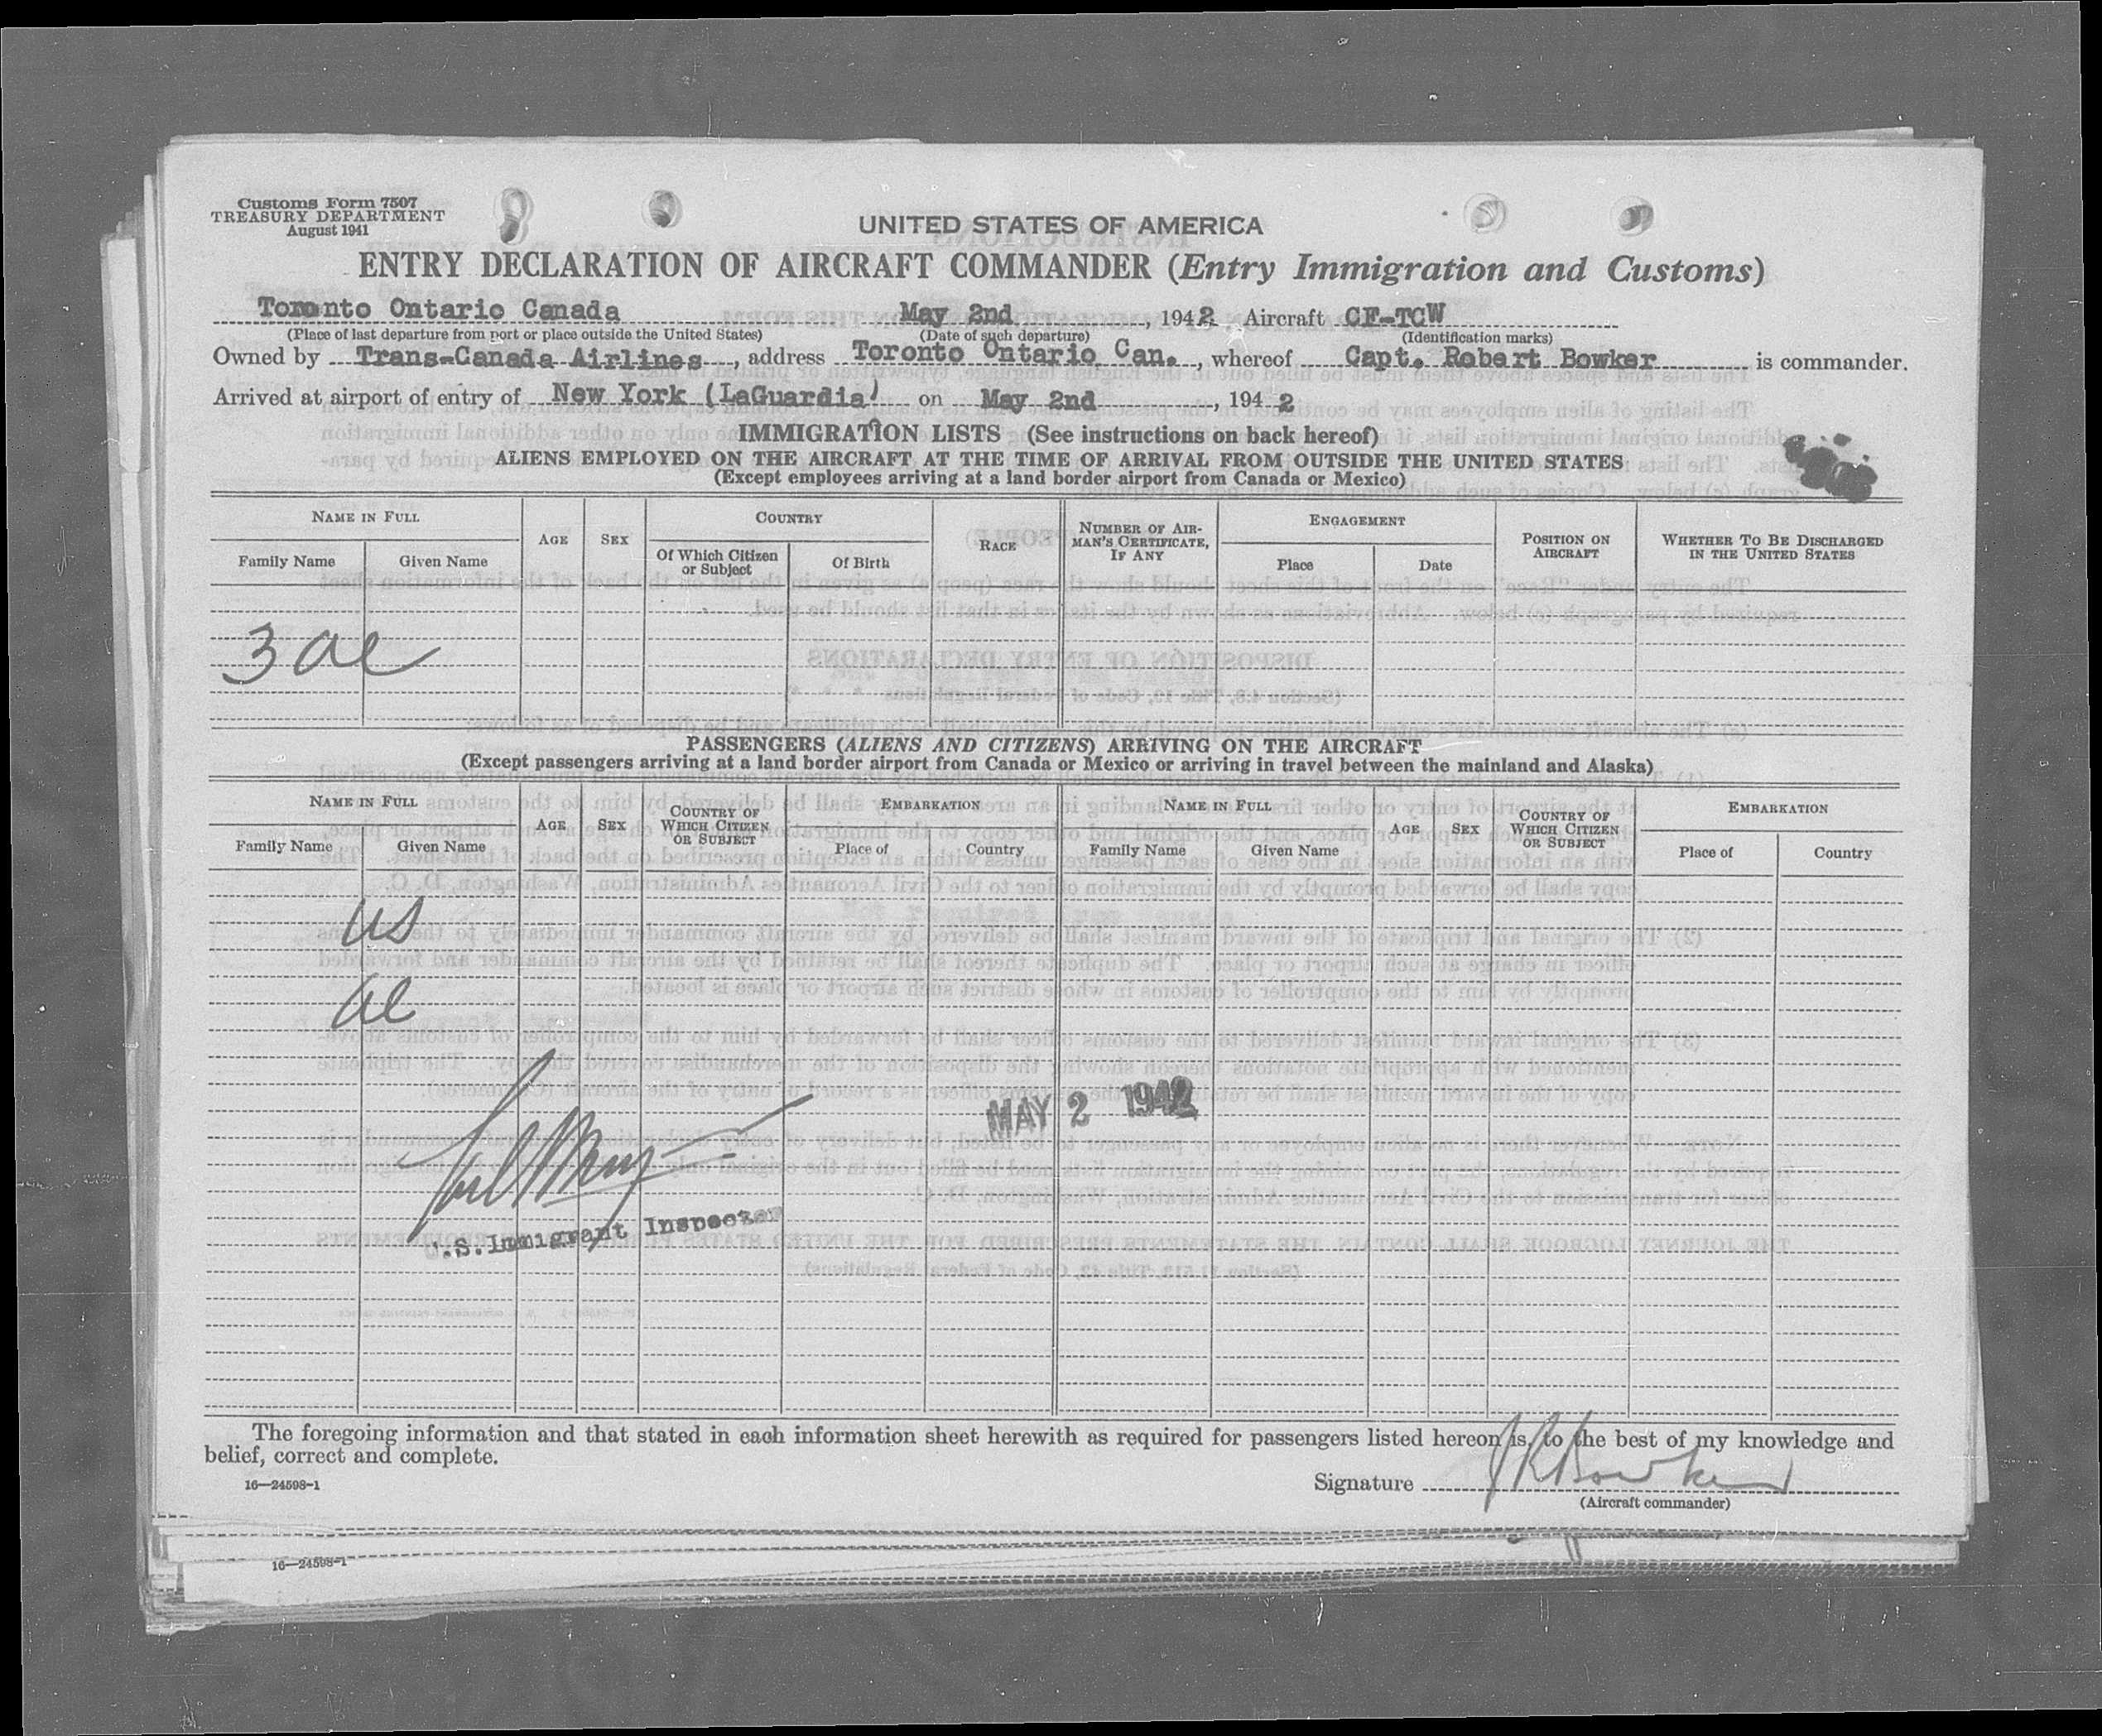 Customs Form 7507
TREASURY DEPARTMENT
August 1941
UNITED STATES OF AMERICA
ENTRY DECLARATION OF AIRCRAFT COMMANDER (Entry Immigration and Customs)
Toronto Ontario Canada May 2nd, 1942 Aircraft CF-TCW
(Place of last departure from port or place outside the United States) (Date of such departure) (Identification marks)
Owned by Trans-Canada Airlines, address Toronto Ontario Can., whereof Capt. Robert Bowker is commander.
Arrived at airport of entry of New York (LaGuardia) on May 2nd, 1942
IMMIGRATION LISTS (See instructions on back hereof)
ALIENS EMPLOYED ON THE AIRCRAFT AT THE TIME OF ARRIVAL FROM OUTSIDE THE UNITED STATES
(Except employees arriving at a land border airport from Canada or Mexico)
NAME IN FULL AGE SEX COUNTRY RACE NUMBER OF AIRMAN'S CERTIFICATE, IF ANY ENGAGEMENT POSITION ON AIRCRAFT WHETHER TO BE DISCHARGED IN THE UNITED STATES
Family Name Given Name Of Which Citizen or Subject Of Birth Place Date
3 al
PASSENGERS (ALIENS AND CITIZENS) ARRIVING ON THE AIRCRAFT
(Except passengers arriving at a land border airport from Canada or Mexico or arriving in travel between the mainland and Alaska)
NAME IN FULL AGE SEX COUNTRY OF WHICH CITIZEN OR SUBJECT EMBARKATION NAME IN FULL AGE SEX COUNTRY OF WHICH CITIZEN OR SUBJECT EMBARKATION
Family Name Given Name Place of Country Family Name Given Name Place of Country
US
al
MAY 2 1942
.S. Immigrant Inspector
The foregoing information and that stated in each information sheet herewith as required for passengers listed hereon is, to the best of my knowledge and
belief, correct and complete.
16—24598-1
Signature JRBowker
(Aircraft commander)
16—24598-1